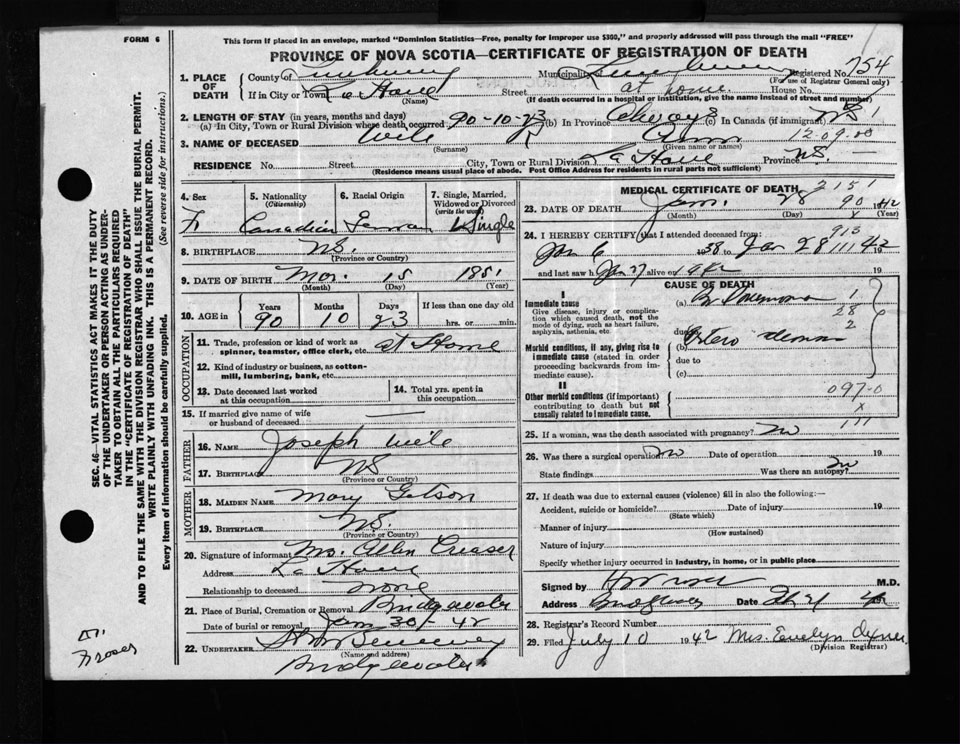 FORM 6
This form if placed in an envelope, marked "Dominion Statistics—Free, penalty for improper use $300," and properly addressed will pass through the mail "FREE"
PROVINCE OF NOVA SCOTIA—CERTIFICATE OF REGISTRATION OF DEATH
1. PLACE OF DEATH
County of Lunenburg Municipality Lunenburg Registered No. 754
(For use of Registrar General only)
If in City or Town La Have Street at home House No.
(Name) (If death occurred in a hospital or institution, give the name instead of street and number)
2. LENGTH OF STAY (in years, months and days)
(a) In City, Town or Rural Division where death occurred 90-10-23 (b) In Province always (c) In Canada (if immigrant) NS
3. NAME OF DECEASED Wile
(Surname) (Given name or names)
12.09.00
RESIDENCE No. Street City, Town or Rural Division La Have Province NS.
(Residence means usual place of abode. Post Office Address for residents in rural parts not sufficient)
4. Sex 5. Nationality (Citizenship) 6. Racial Origin 7. Single, Married, Widowed or Divorced (write the word)
F. Canadian German Single
8. BIRTHPLACE NS.
(Province or Country)
9. DATE OF BIRTH Mar. 15 1851
(Month) (Day) (Year)
10. AGE in Years Months Days If less than one day old
90 10 23 hrs. or min.
OCCUPATION
11. Trade, profession or kind of work as spinner, teamster, office clerk, etc. at Home
12. Kind of industry or business, as cotton-mill, lumbering, bank, etc.
13. Date deceased last worked at this occupation
14. Total yrs. spent in this occupation
15. If married give name of wife or husband of deceased
FATHER
16. NAME Joseph Wile
17. BIRTHPLACE NS
(Province or Country)
MOTHER
18. MAIDEN NAME Mary Getson
19. BIRTHPLACE NS.
(Province or Country)
20. Signature of informant Mrs. Allen Creaser
Address La Have
Relationship to deceased none
21. Place of Burial, Cremation or Removal Bridgewater
Date of burial or removal Jan 30-42
22. UNDERTAKER
(Name and address)
Bridgewater
MEDICAL CERTIFICATE OF DEATH
2151
23. DATE OF DEATH Jan. 28 90 1942
(Month) (Day) (Year)
x
24. I HEREBY CERTIFY that I attended deceased from:
913
Jan 6 1938 Jan 28 111 1942
and last saw h Jan 27 alive on 1942 19
CAUSE OF DEATH
I
Immediate cause (a) Br Pneumonia
Give disease, injury or complication which caused death, not the mode of dying, such as heart failure, asphyxia, asthenia, etc.
1
28
2
due to
Morbid conditions, if any, giving rise to immediate cause (stated in order proceeding backwards from immediate cause).
(b)
due to
(c)
II
Other morbid conditions (if important) contributing to death but not causally related to immediate cause.
097-0
x
111
25. If a woman, was the death associated with pregnancy? no
26. Was there a surgical operation no Date of operation 19
State findings Was there an autopsy? no
27. If death was due to external causes (violence) fill in also the following:—
Accident, suicide or homicide? Date of injury 19
(State which)
Manner of injury
(How sustained)
Nature of injury
Specify whether injury occurred in Industry, in home, or in public place
Signed by M.D.
Address Bridgewater Date
28. Registrar's Record Number
29. Filed July 10 1942 Mrs. Evelyn
(Division Registrar)
SEC. 46—VITAL STATISTICS ACT MAKES IT THE DUTY
OF THE UNDERTAKER OR PERSON ACTING AS UNDER-
TAKER TO OBTAIN ALL THE PARTICULARS REQUIRED
IN THE "CERTIFICATE OF REGISTRATION OF DEATH"
AND TO FILE THE SAME WITH THE DIVISION REGISTRAR WHO SHALL ISSUE THE BURIAL PERMIT.
WRITE PLAINLY WITH UNFADING INK. THIS IS A PERMANENT RECORD.
Every item of information should be carefully supplied. (See reverse side for instructions.)